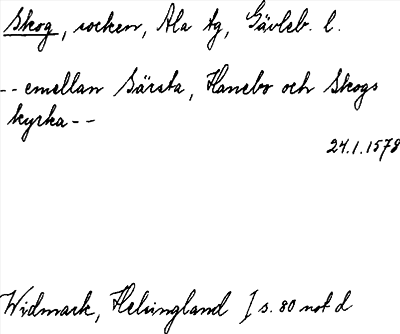 Skog, socken, Ala tg, Gävleb. l.
-- emellan Särsta, Hanebo och Skogs
kyrka --
24.1.1578
Widmark, Helsingland I s. 80 not d